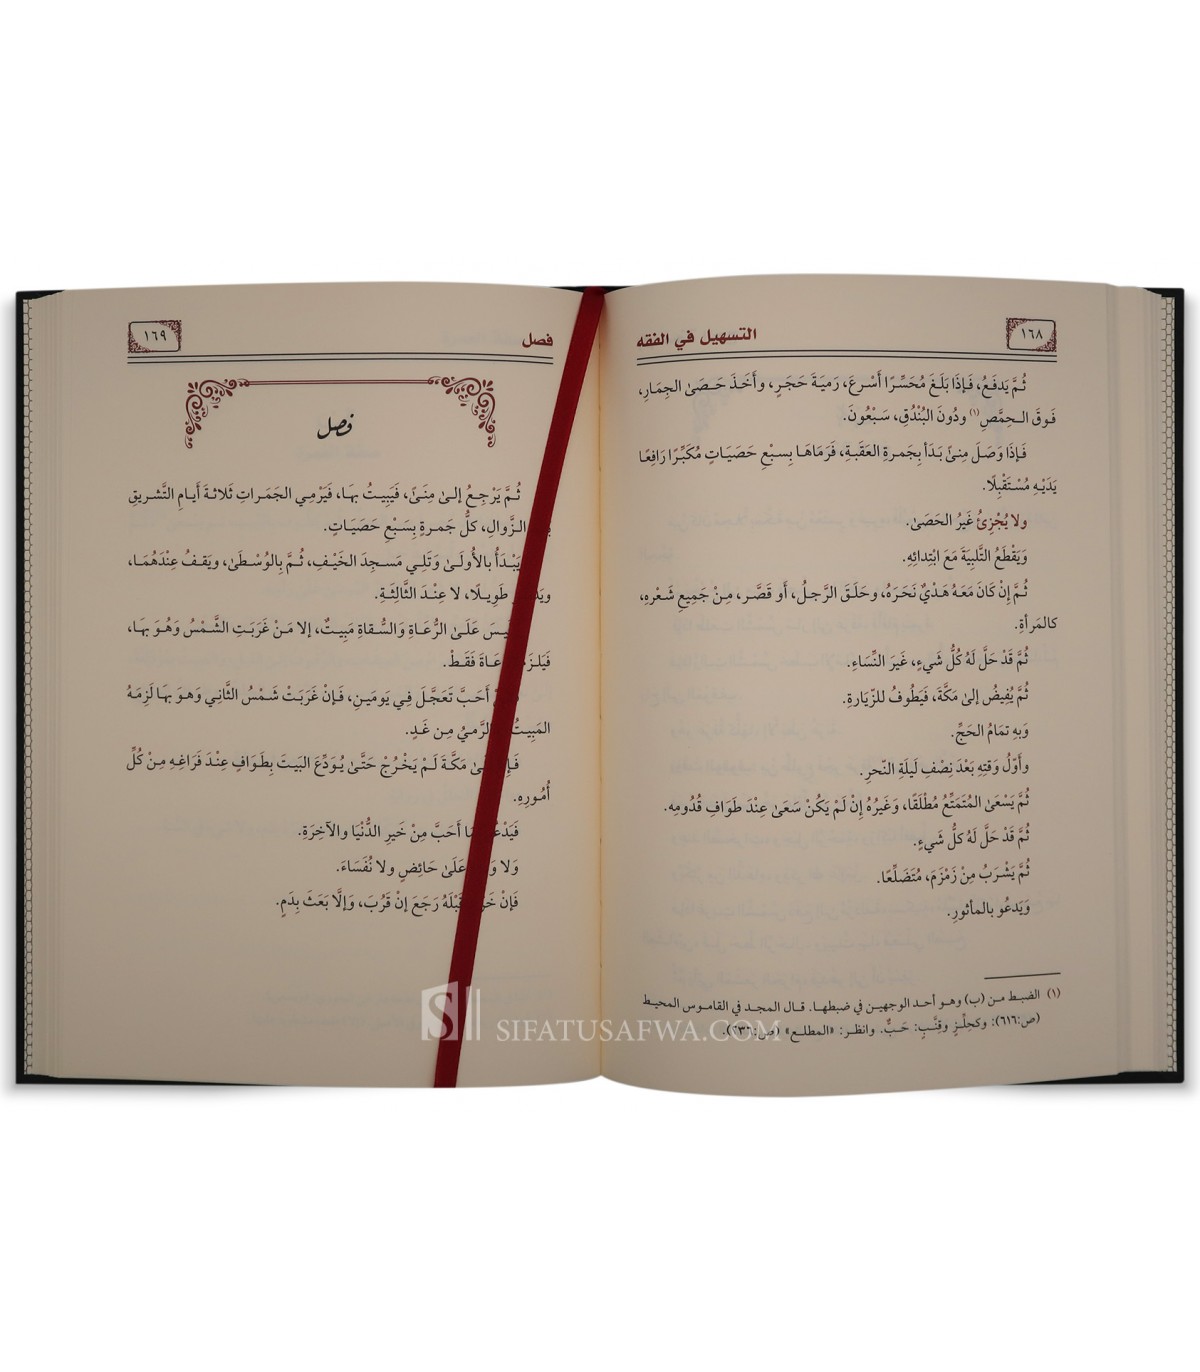 ١٦٨
التسهيل في الفقه
ثُمَّ يَدفَعُ، فَإذَا بَلَغَ مُحَسِّرًا أَسْرعَ، رَميَةَ حَجَرٍ، وأَخَذَ حَصَىٰ الجِمَارِ،
فَوقَ الـحِمَّصِ (١) ودُونَ البُنْدُقِ، سَبْعُونَ.
فَإذَا وَصَلَ مِنىً بَدَأ بِجَمرةِ العَقَبةِ، فَرَمَاهَا بِسبْعِ حَصَيَاتٍ مُكَبِّرًا رَافِعًا
يَدَيْهِ مُسْتَقْبِلًا.
ولا يُجْزِئُ غَيْرُ الحَصَىٰ.
وَيَقْطَعُ التَّلبِيَةَ مَعَ ابْتِدائِهِ.
ثُمَّ إنْ كَانَ مَعَهُ هَدْيٌ نَحَرَهُ، وحَلَقَ الرَّجلُ، أَو قَصَّر، مِنْ جَمِيعِ شَعْرِهِ،
كالمَرأةِ.
ثُمَّ قَدْ حَلَّ لَهُ كُلُّ شَيءٍ، غَيَرَ النِّسَاءِ.
ثُمَّ يُفِيضُ إلىٰ مَكَّةَ، فَيَطُوفُ للزّيارةِ.
وَبِهِ تمَامُ الحَجِّ.
وأوّلُ وَقتِهِ بَعْدَ نِصْفِ لَيلَةِ النّحرِ.
ثُمَّ يَسْعَىٰ المُتَمَتِّعُ مُطْلَقًا، وَغَيْرُهُ إنْ لَمْ يَكُنْ سَعَىٰ عِنْدَ طَوَافِ قُدُومِهِ.
ثُمَّ قَدْ حَلَّ لَهُ كُلُّ شَيءٍ.
ثُمَّ يَشْرَبُ مِنْ زَمْزَمَ، مُتَضَلِّعًا.
وَيَدعُو بالمأثورِ.
(١) الضبط من (ب) وهو أحد الوجهين في ضبطها. قال المجد في القاموس المحيط
(ص:٦١٦): وكحِلِّزٍ وقِنَّبٍ: حَبٌّ. وانظر: «المطلع» (ص:٦٣٦).
فصل
١٦٩
فصل
ثُمَّ يَرْجِعُ إلىٰ مِنَىً، فَيَبِيتُ بهَا، فَيَرْمِي الجَمَراتِ ثَلاثةَ أَيامِ التَّشريقِ
الـزَّوالِ، كلُّ جَمرةٍ بِسَبْعِ حَصَيَاتٍ.
يَبْدَأُ بالأُولَىٰ وَتَلِي مَسجِدَ الخَيْفِ، ثُمَّ بِالوُسْطَىٰ، ويَقفُ عِنْدَهُمَا،
طَوِيـلًا، لا عِنْدَ الثَّالِثَةِ.
عَلَىٰ الرُّعَاةِ وَالسُّقاةِ مَبِيتٌ، إلا مَنْ غَرَبَتِ الشَّمْسُ وَهُوَ بهَا،
فَقَطْ.
أَحَبَّ تَعَجَّلَ فِي يَومَينِ، فَإنْ غَرَبَتْ شَمْسُ الثَّاني وَهوَ بهَا لَزِمَهُ
المَبِيتُ الرَّميُ مِن غَدٍ.
مَكَّةَ لَـمْ يَخْرُجْ حَتَّىٰ يُـوَدِّعَ البَيتَ بِطَوَافٍ عِنْدَ فَرَاغِهِ مِنْ كُلِّ
أُمُورِهِ.
أَحَبَّ مِنْ خَيرِ الدُّنْيَا والآخِرَةِ.
وَلا عَلَىٰ حَائِضٍ ولا نُفَسَاءَ.
فَإنْ قَبْلَهُ رَجَعَ إنْ قَرُبَ، وَإلَّا بَعَثَ بِدَمٍ.
SIFATUSAFWA.COM